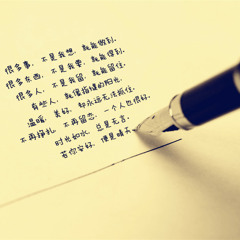 很多事，不是我想，就能做到，
很多东西，不是我要，就能得到，
很多人，不是我留，就能留住，
有些人，就像指缝的阳光，
温暖、美好，却永远无法抓住，
不再挣扎，不再留恋，一个人也很好，
时光如水，总是无言，
若你安好，便是晴天。